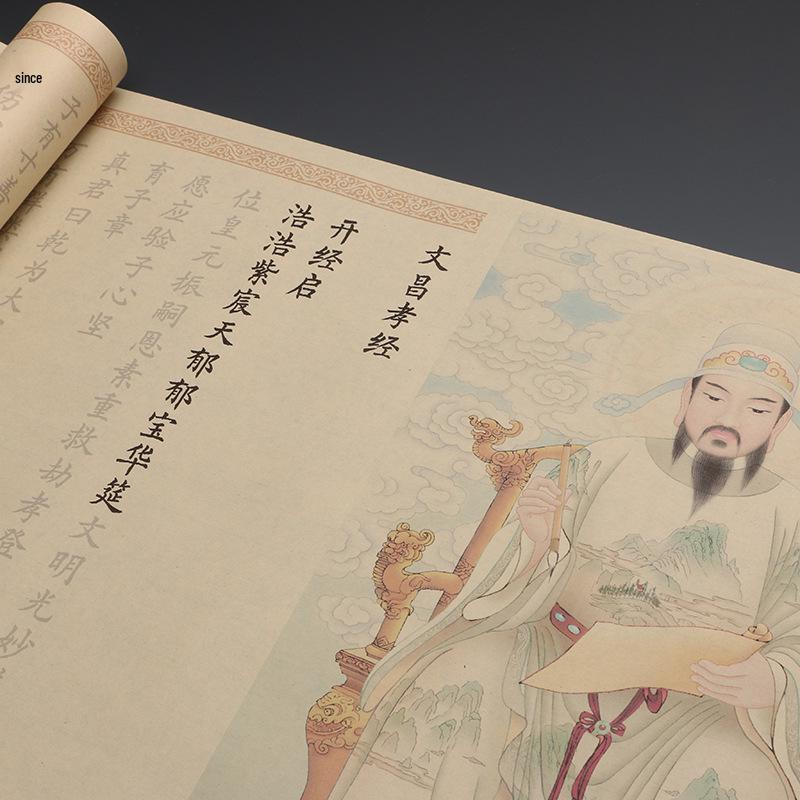 since
文昌孝经
开经启
浩浩紫宸天郁郁宝华筵文明光妙
位皇元振嗣恩素重救劫孝登
愿应验子心坚
育子章
真君曰乾为大
子有寸善